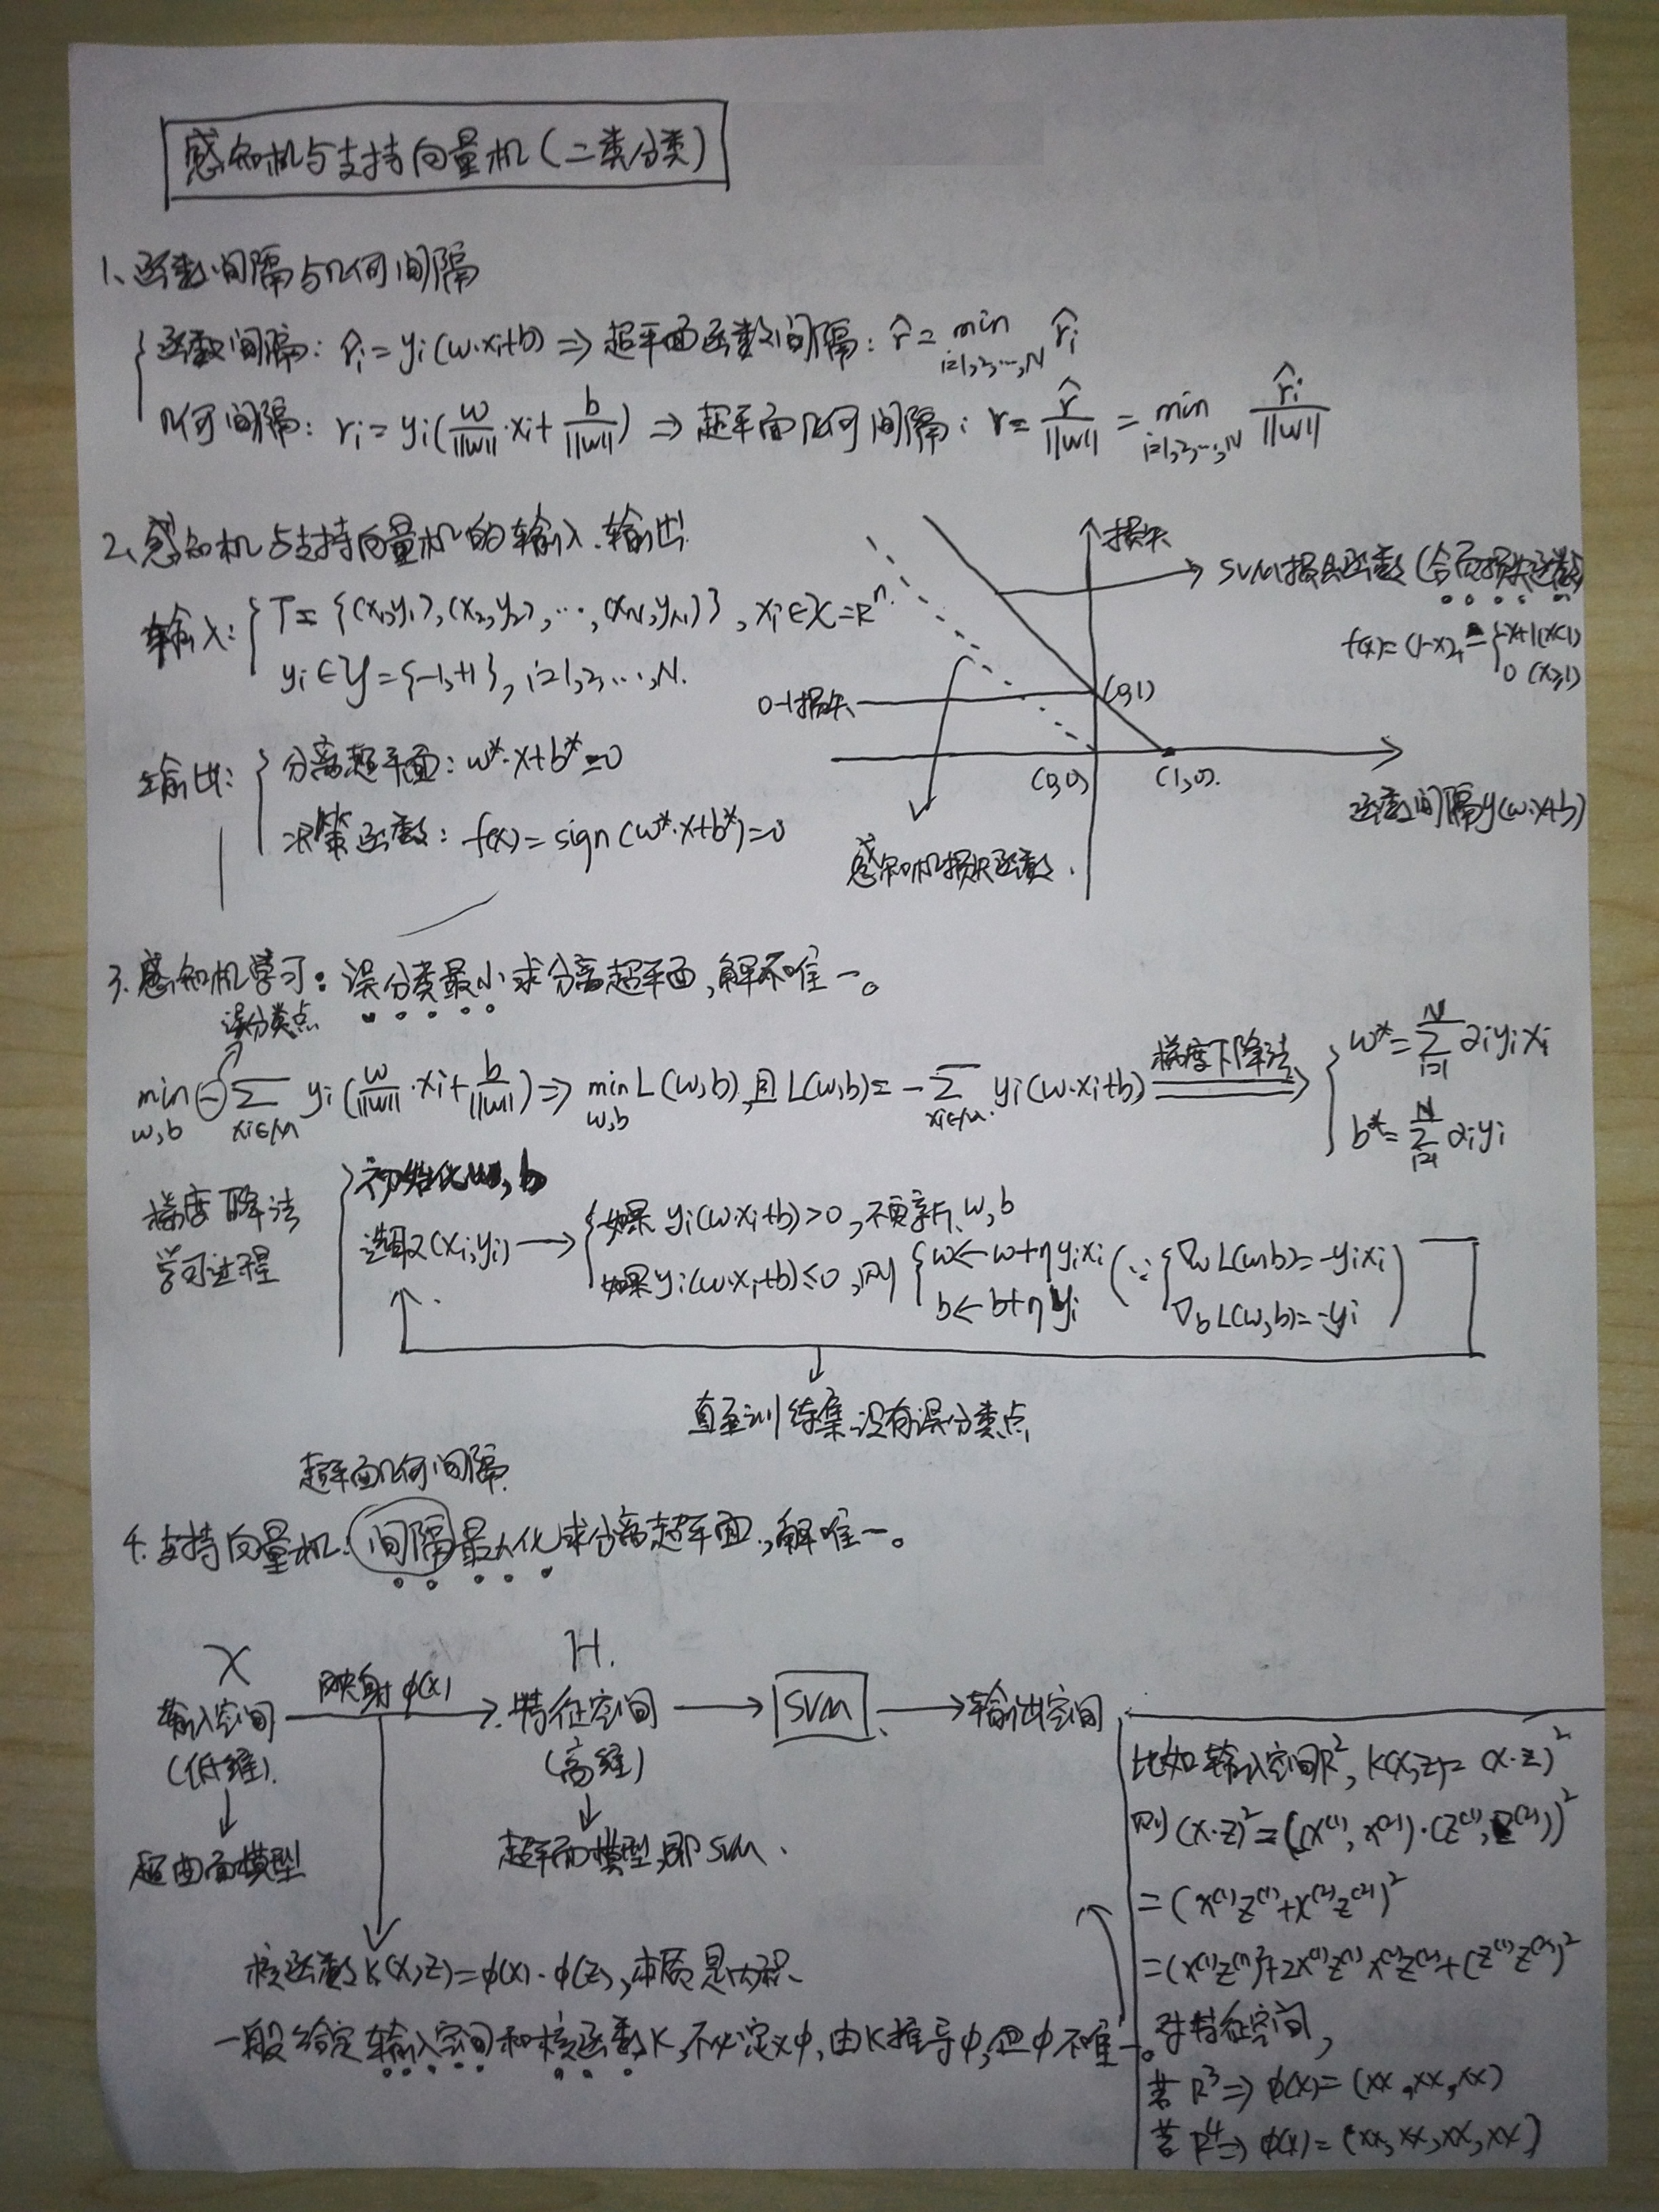 感知机与支持向量机(二类分类)
1、函数间隔与几何间隔
函数间隔: r̂i = yi(w·xi+b) ⇒ 超平面函数间隔: r̂ = min i=1,2,…,N r̂i
几何间隔: ri = yi(w/||w||·xi + b/||w||) ⇒ 超平面几何间隔: r = r̂/||w|| = min i=1,2,…,N r̂i/||w||
2、感知机与支持向量机的输入、输出
输入: T = {(x1,y1),(x2,y2),…,(xN,yN)}, xi∈X=R^n
yi∈Y={-1,+1}, i=1,2,…,N.
输出: 分离超平面: w*·x+b*=0
决策函数: f(x)=sign(w*·x+b*)=0
损失
SVM损失函数(合页损失函数)
f(x)=(1-x)+={-x+1(x<1)
0 (x≥1)
0-1损失
(0,1)
(0,0)
(1,0).
函数间隔y(w·x+b)
感知机损失函数.
3.感知机学习: 误分类最小求分离超平面,解不唯一。
误分类点
min w,b (-) Σ xi∈M yi(w/||w||·xi+b/||w||) ⇒ min w,b L(w,b),且L(w,b)=-Σ xi∈M yi(w·xi+b) 梯度下降法 w*=Σ i=1 N αiyixi
b*=Σ i=1 N αiyi
梯度下降法
学习过程
初始化w,b
选取(xi,yi) → 如果 yi(w·xi+b)>0,不更新w,b
如果yi(w·xi+b)≤0,则 {w←w+ηyixi (∵{∇wL(w,b)=-yixi
b←b+ηyi ∇bL(w,b)=-yi)
直至训练集没有误分类点
超平面几何间隔
4.支持向量机:间隔最大化求分离超平面,解唯一。
X
H.
输入空间 映射φ(x) → 特征空间 → SVM → 输出空间
(低维).
(高维)
超曲面模型
超平面模型,即SVM.
核函数K(x,z)=φ(x)·φ(z),本质是内积、
一般给定输入空间和核函数K,不必定义φ,由K推导φ,但φ不唯一。
比如输入空间R^2, K(x,z)=(x·z)^2
则(x·z)^2=((x^(1),x^(2))·(z^(1),z^(2)))^2
=(x^(1)z^(1)+x^(2)z^(2))^2
=(x^(1)z^(1))^2+2x^(1)z^(1)x^(2)z^(2)+(z^(1)z^(2))^2
对特征空间,
若R^3⇒φ(x)=(xx,xx,xx)
若R^4⇒φ(x)=(xx,xx,xx,xx)